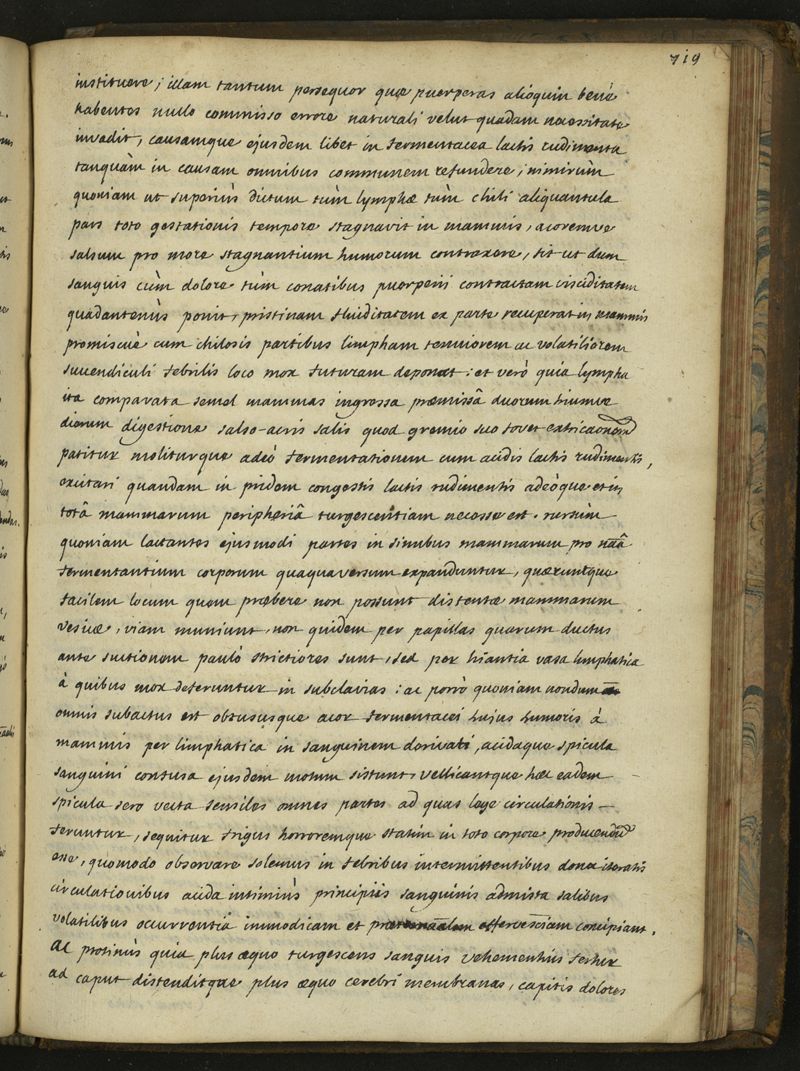 719
instituere; illam tantum persequor quæ puerperas alioquin benè
habentes nullo commisso errore naturali velut quadam necessitate
invadit, causamque ejusdem libet in fermentacea lactis rudimenta
tanquàm in causam omnibus communem refundere; nimirùm
quoniam ut superiùs dictum tùm lymphæ tùm chili aliquantula
pars toto gestationis tempore stagnavit in mammis, acoremve
salsum pro more stagnantium humorum contraxere, fit ut dum
sanguis cùm dolore tùm conatibus puerperii contractam visciditatem
quadantenùs ponit, pristinam fluiditatem ex parte recuperat in mammis
promiscuè cum chilosis partibus limpham tenuiorem ac volatiliorem
suvendiculi febrilis loco mox futuram deponat: et verò quia lympha
ita comparata semel mammas ingressa præmissâ duorum triumve
dierum digestione salso-acris salis quod gremio suo fovet
patitur moliturque adeò fermentationem cum acidis lactis rudimentis,
excitari quandam in pridem congestis lactis rudimentis adeòque et in
totâ mammarum peripheriâ turgescentiam necesse est. rursùm
quoniam lactantes ejusmodi partes in sinubus mammarum pro nãâ
fermentantium corporum quaquaversum expanduntur, quæruntque
facilem locum quem præbere non possunt distentæ mammarum
vesicæ, viam muniunt, non quidem per papillas quarum ductus
ante suctionem paulò strictiores sunt, sed per hiantia vasa limphatica
à quibus mox deferuntur in subclavias: ac porrò quoniam nondum
omnis subactus est obtususque acor fermentacei hujus humoris à
mammis per limphatica in sanguinem derivati, acidaque spicula
sanguini confusa ejusdem motum sistunt, vellicantque hæc eadem
spicula sero vecta sensiles omnes partes ad quas lege circulationis —
feruntur, sequitur frigus horroremque statim in toto corpore producendũ
esse, quomodo observare solemus in febribus intermittentibus donec iteratis
circulationibus acida intimiùs principiis sanguinis admista salibus
volatilibus occurrentia immodicam et effervesciam concipiant.
Ac protinùs quia plus æquo turgescens sanguis vehementiùs fertur
ad caput distenditque plus æquo cerebri membranas, capitis dolores